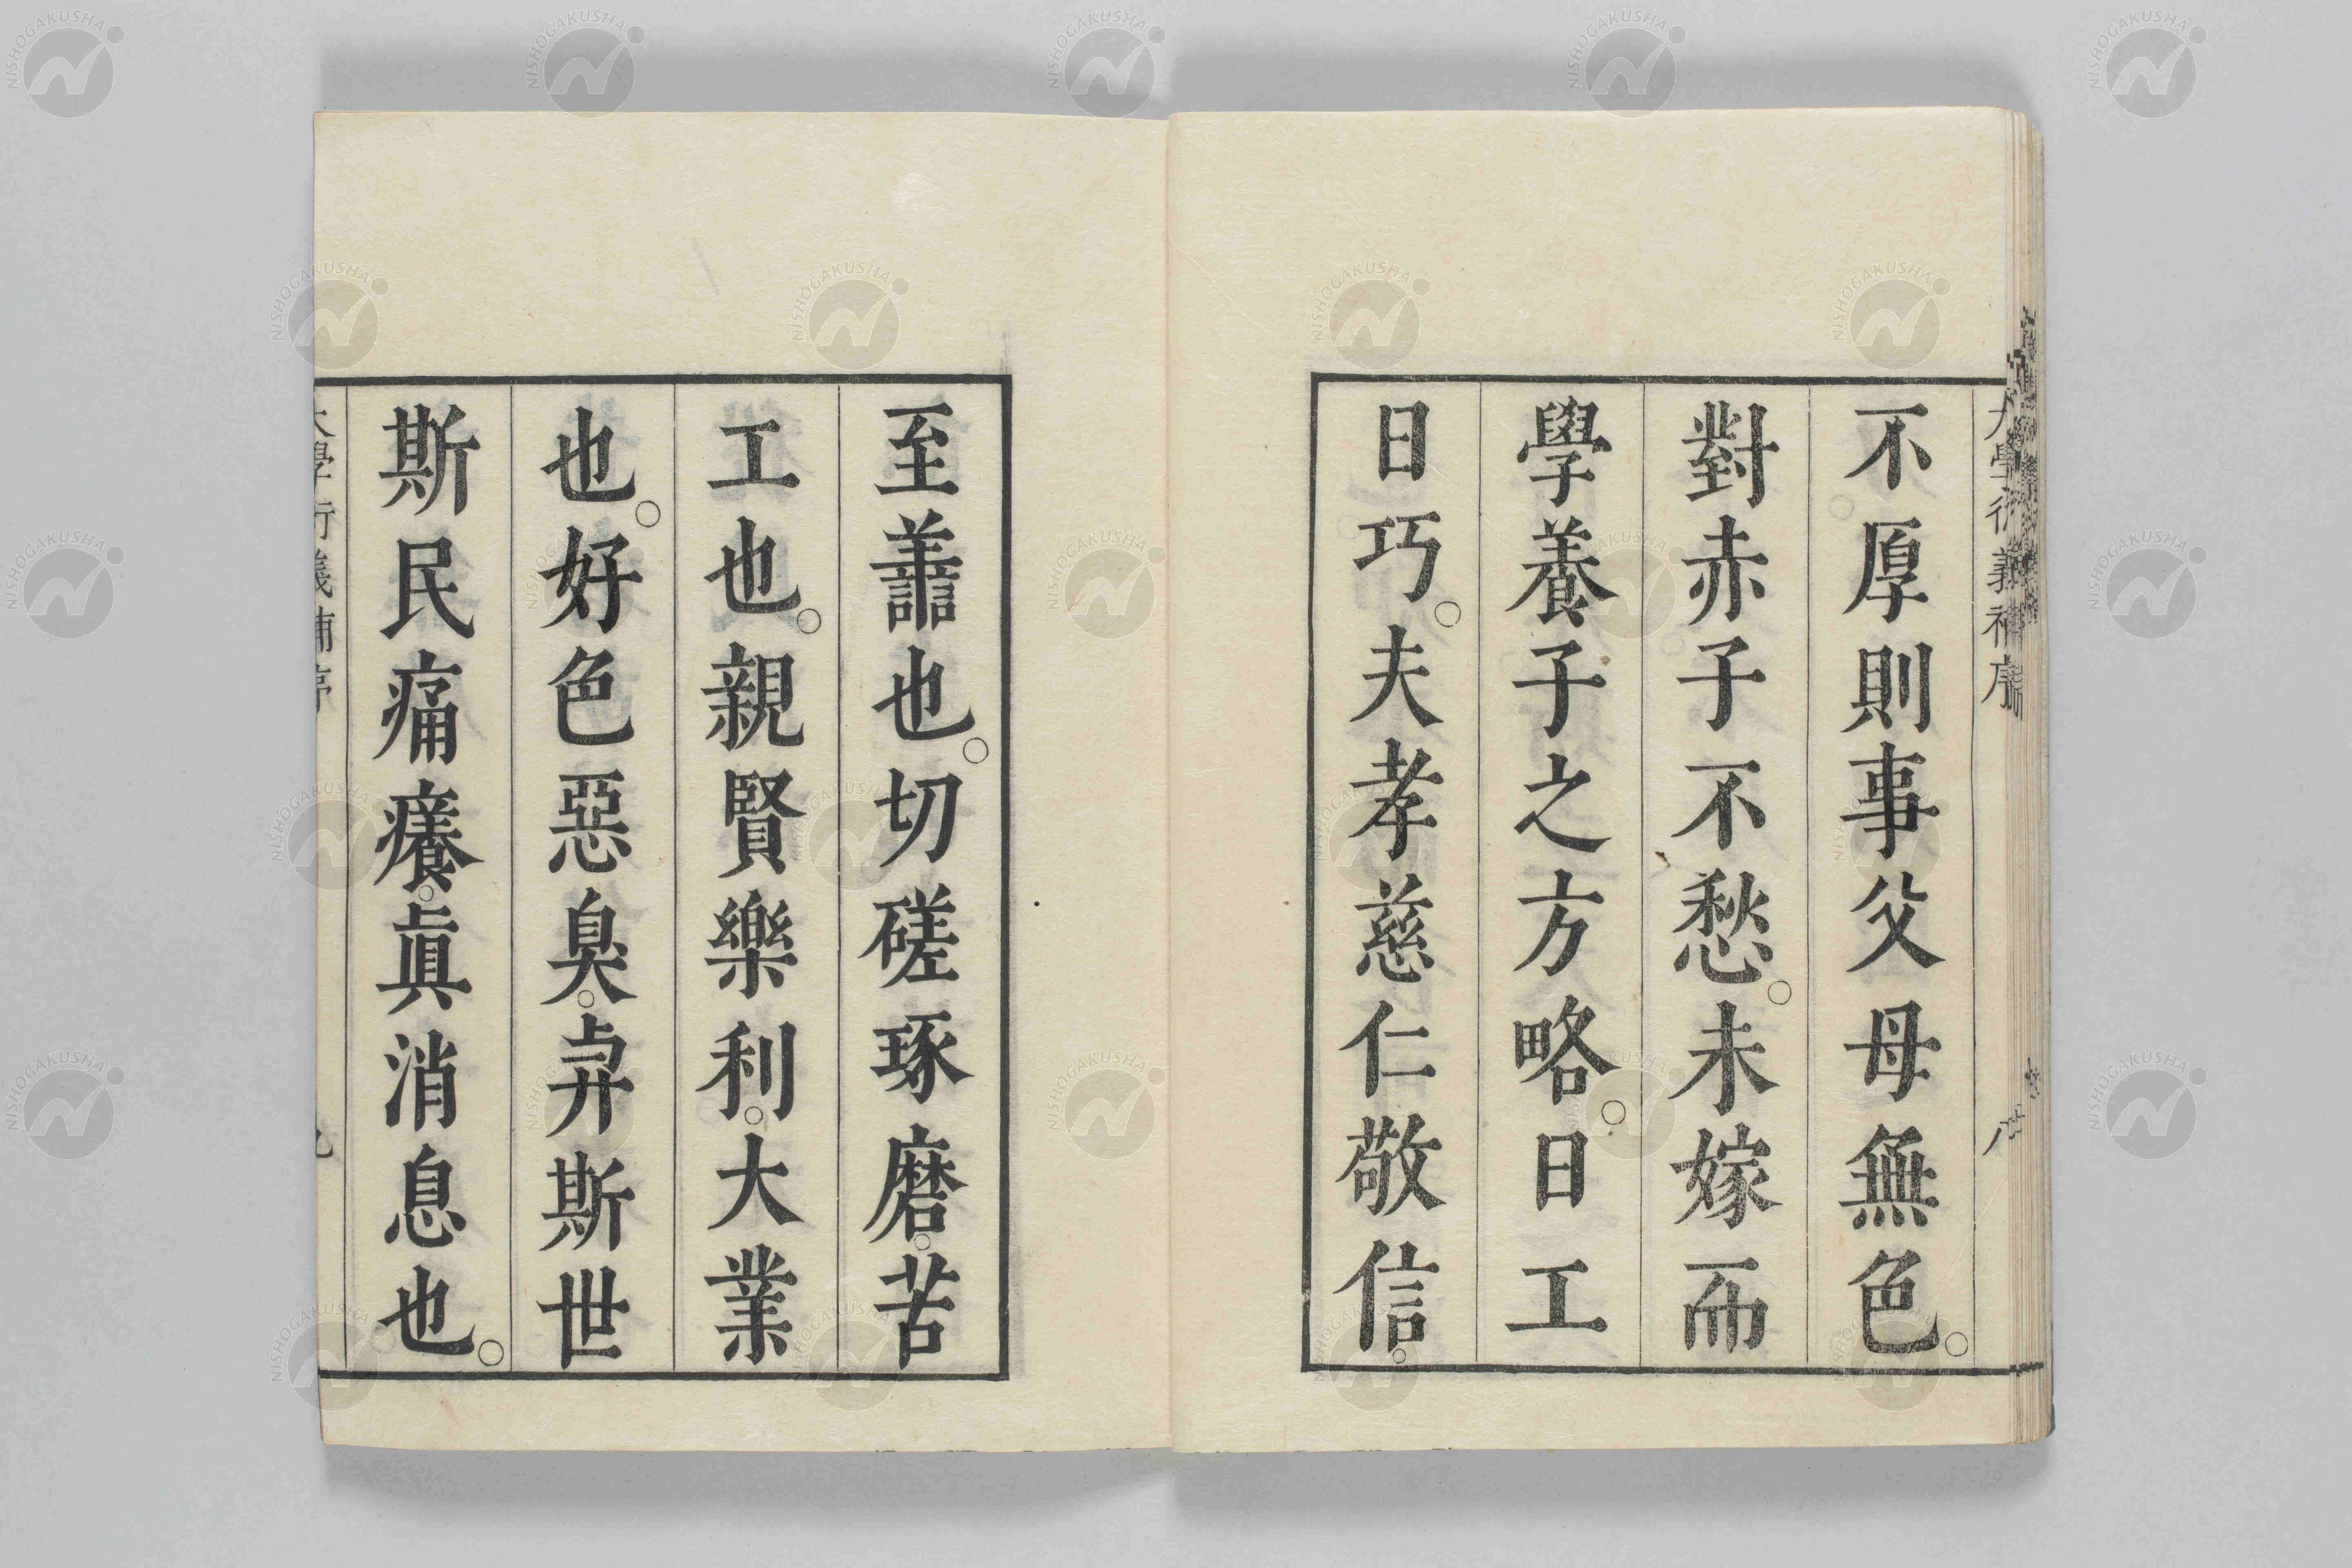 大學衍義補序
八
不厚則事父母無色。
對赤子不愁。未嫁而
學養子之方略。日工
日巧。夫孝慈仁敬信。
至譱也。切磋琢磨。苦
工也。親賢樂利。大業
也。好色惡臭。斯世
斯民痛癢。眞消息也。
大學衍義補序
NISHOGAKUSHA